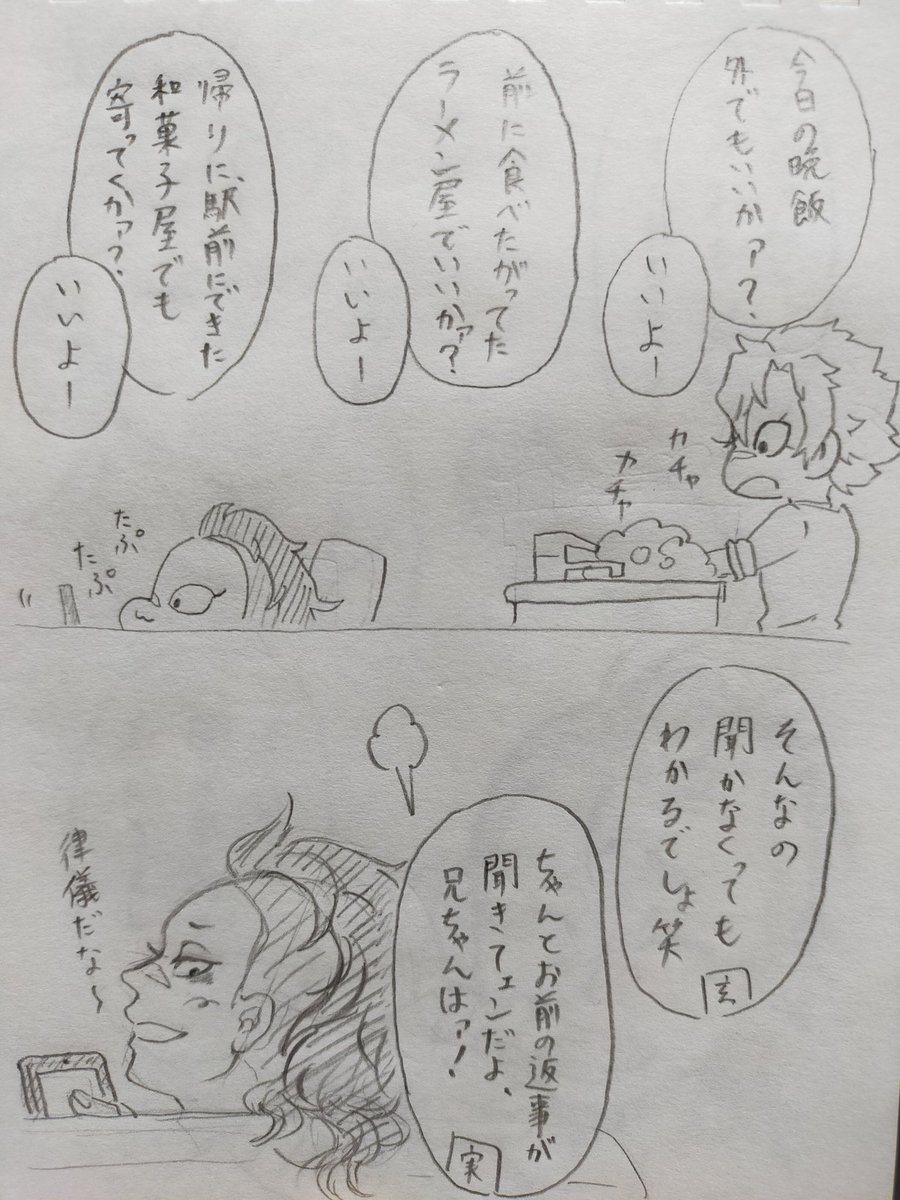 今日の晩飯
外でもいいかァ？
いいよー
前に食べたがってた
ラーメン屋でいいかァ？
いいよー
帰りに、駅前にできた
和菓子屋でも
寄ってくかァ？
いいよー
カチャ
カチャ
OS
たぷ
たぷ
そんなの
聞かなくっても
わかるでしょ笑
玄
ちゃんとお前の返事が
聞きてェンだよ、
兄ちゃんはァ！
実
律儀だな～